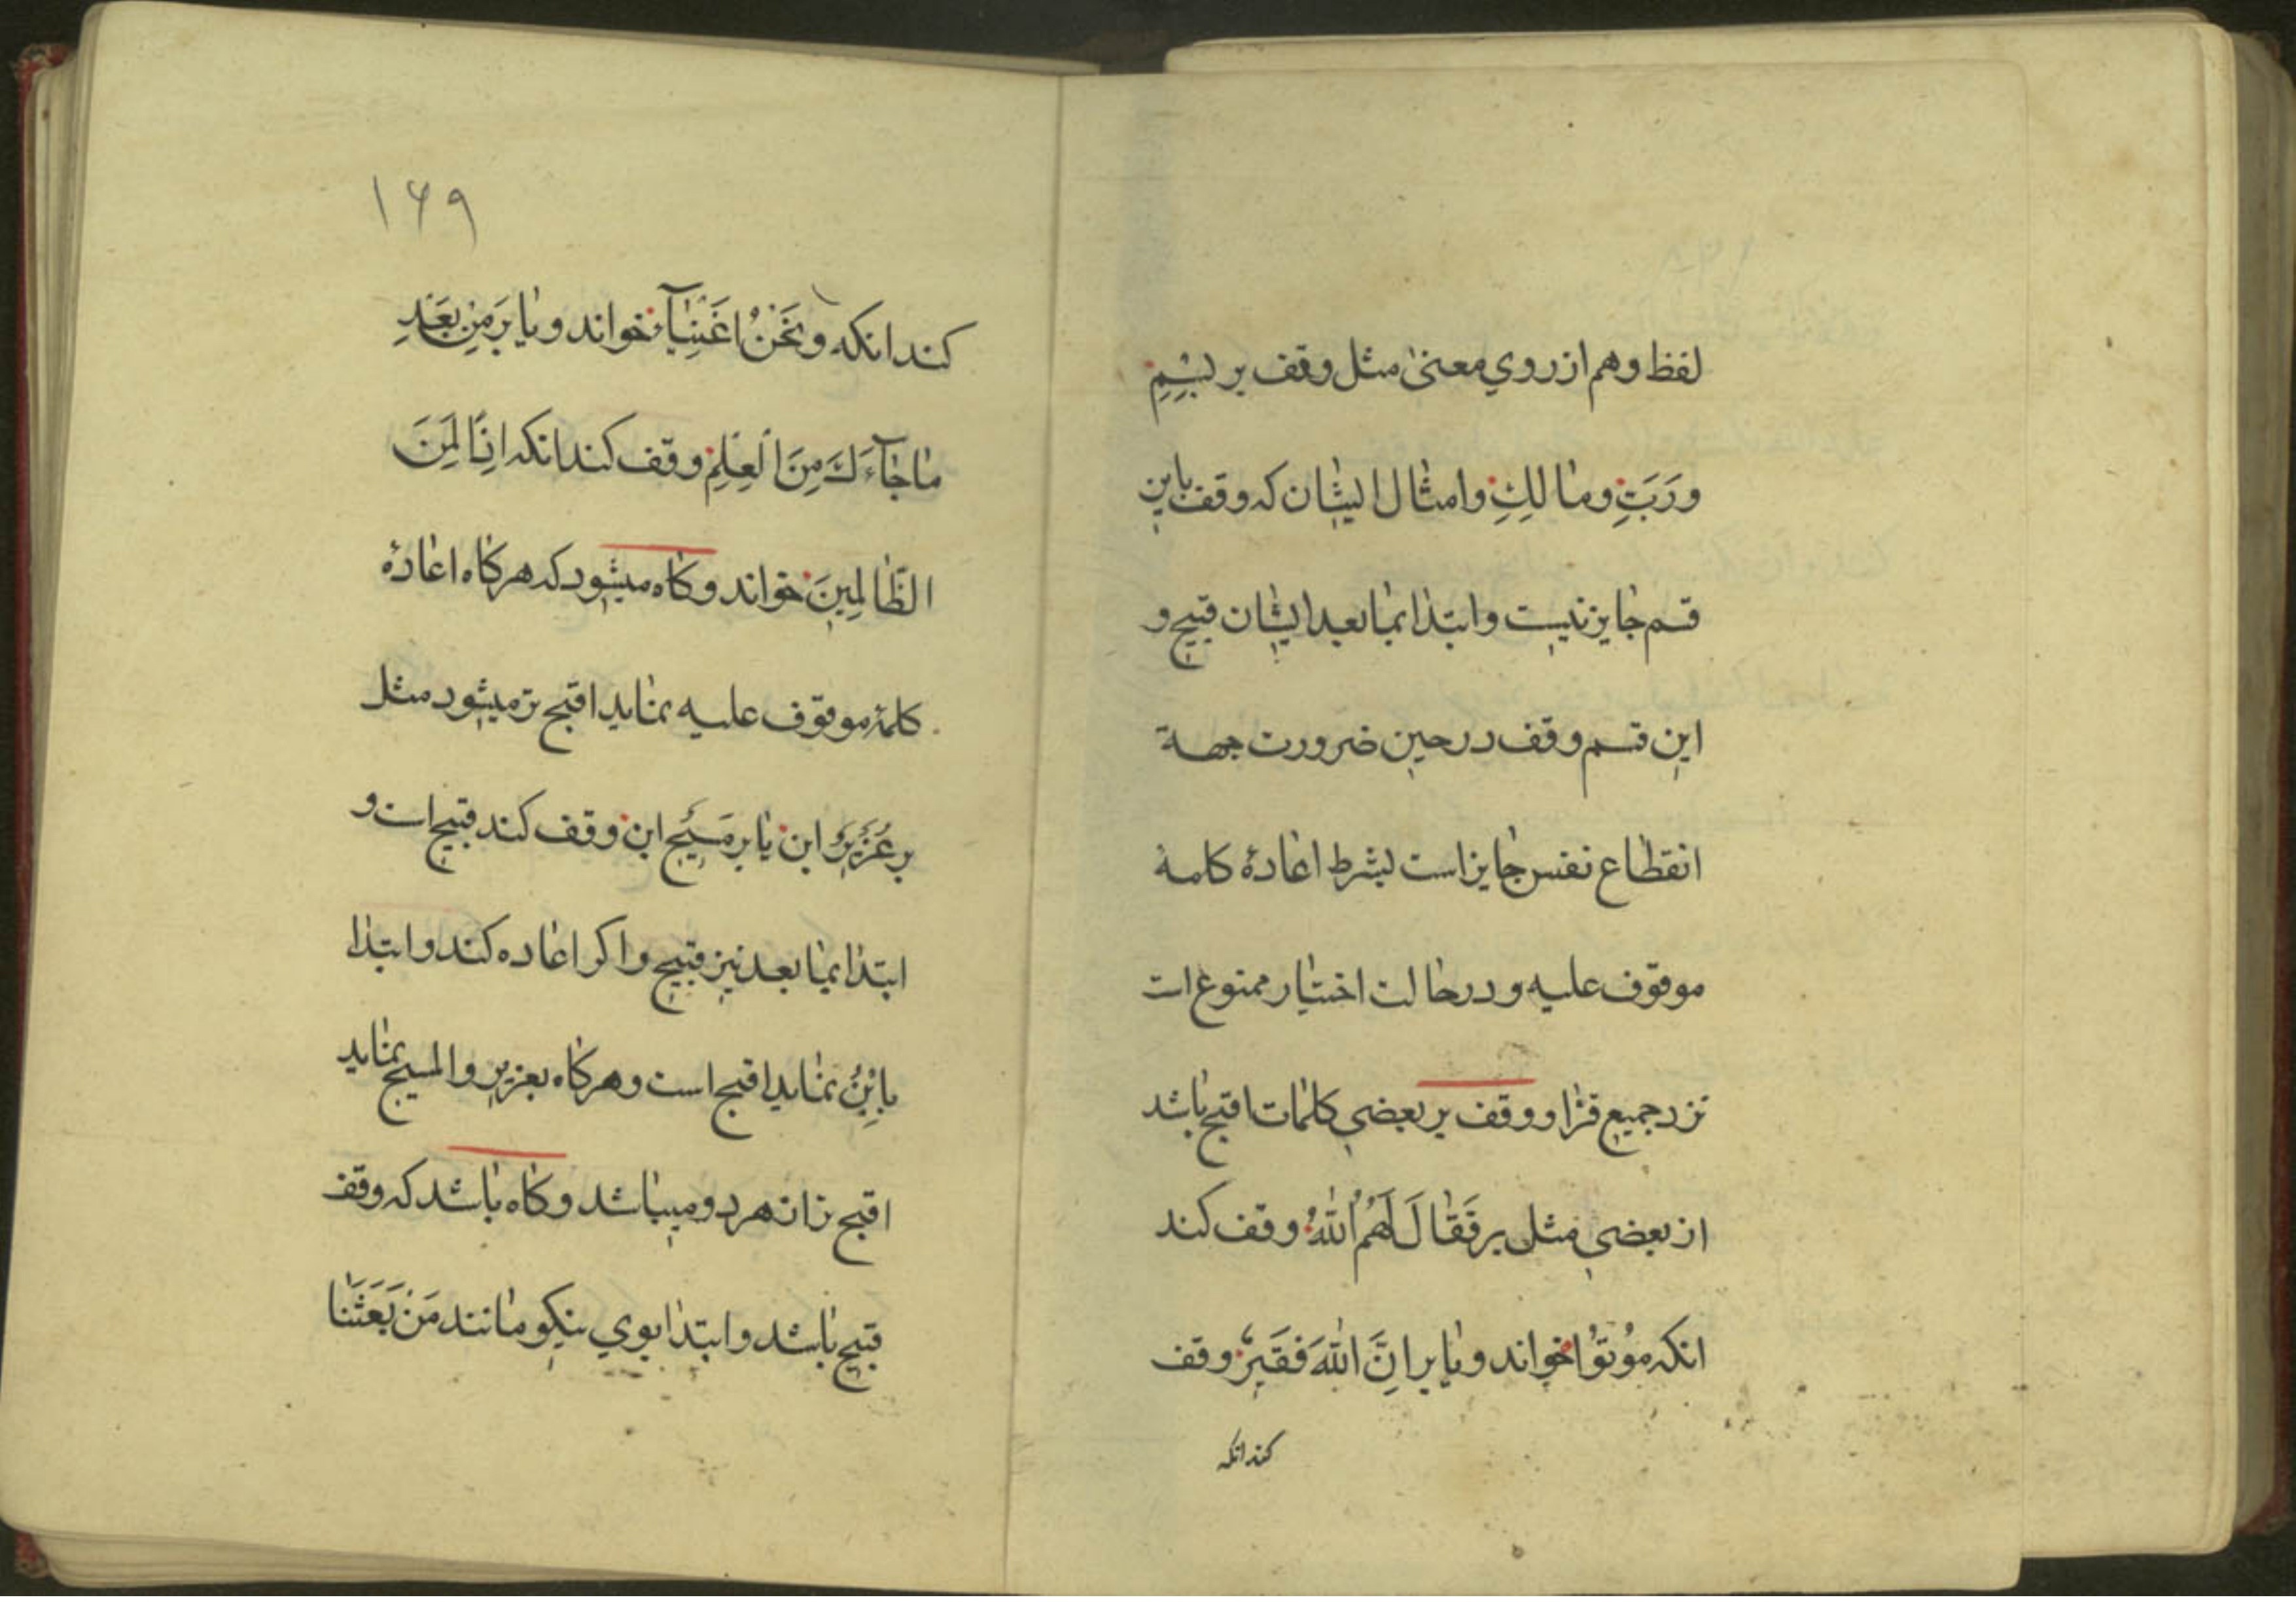 لفظ وهم از روي معنیٰ مثل وقف بر بِسْمِ
و رَبِّ و مالِكِ و امثال ایشان که وقف باین
قسم جایز نیست و ابتدا بمابعد ایشان قبیح و
این قسم وقف در حین ضرورت جهة
انقطاع نفس جایز است بشرط اعادهٔ کلمهٔ
موقوف علیه و در حالت اختیار ممنوع است
نزد جمیع قرّا و وقف بر بعضي کلمات اقبح باشد
از بعضي مثل بر فَقَالَ لَهُمُ اللهُ وقف کند
انکه مُوتُوْا خواند و یا بر اِنَّ اللهَ فَقَیرٌ وقف
کند انکه
۱۶۹
کند انکه وَنَحْنُ اَغْنِیَآءُ خواند و یا بر مِنْ بَعْدِ
مَا جَآءَكَ مِنَ الْعِلْمِ وقف کند انکه اِنَّا لَمِنَ
الظَّالِمِینَ خواند و کاه میشود که هرکاه اعادهٔ
کلمهٔ موقوف علیه نماید اقبح تر میشود مثل
بر عُزَیْرٌ ابن یا بر مَسیح ابن وقف کند قبیح است و
ابتدا بمابعد نیز قبیح و اکر اعاده کند و ابتدا
بابْنُ نماید اقبح است و هرکاه بعزیر و المسیح نماید
اقبح زان هر دو میباشد و کاه باشد که وقف
قبیح باشد و ابتدا بوي نیکو مانند مَنْ بَعَثَنَا